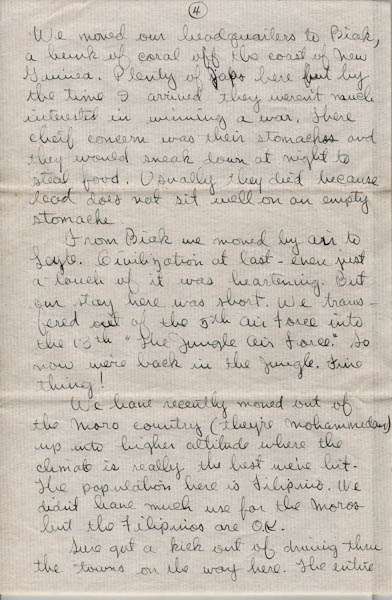 4
We moved our headquarters to Biak,
a hunk of coral off the coast of New
Guinea. Plenty of Japs here but by
the time I arrived they weren't much
interested in winning a war. There
cheif concern was their stomachs and
they would sneak down at night to
steal food. Usually they died because
lead does not sit well on an empty
stomache.
From Biak we moved by air to
Leyte. Civilization at last - even just
a touch of it was heartening. But
our stay here was short. We trans-
fered out of the 5th Air Force into
the 13th "The Jungle Air Force." So
now we're back in the Jungle. Fine
thing!
We have recently moved out of
the Moro country (they're Mohammedan)
up into higher altitude where the
climate is really the best we've hit.
The population here is Filipino. We
didn't have much use for the Moros
but the Filipinos are O.K.
Sure got a kick out of driving thru
the towns on the way here. The entire